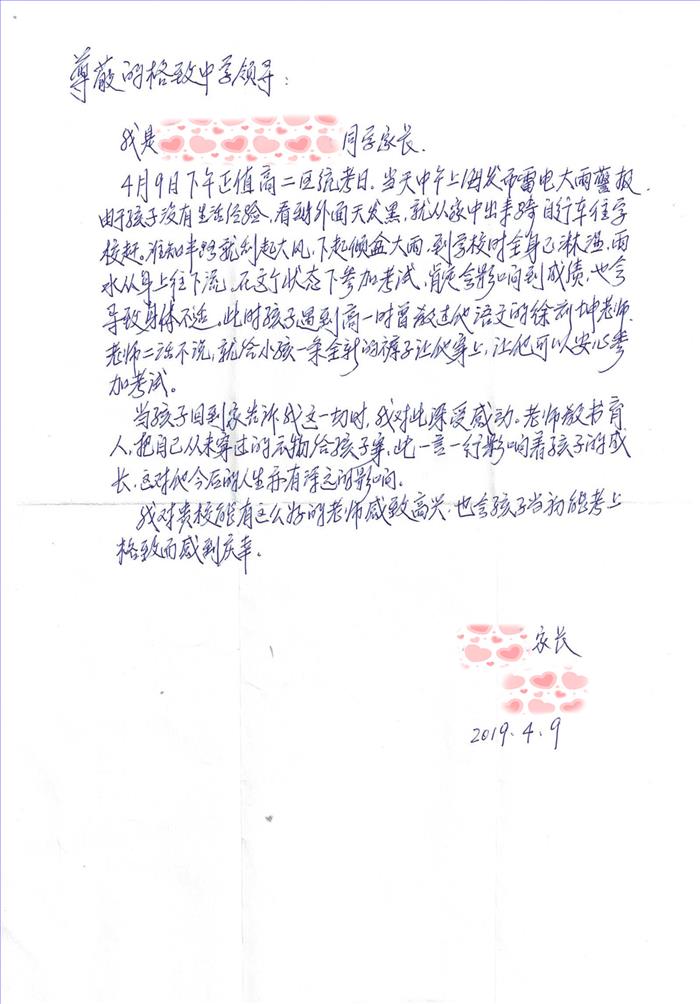 尊敬的格致中学领导：
我是 同学家长.
4月9日下午正值高二区统考日.当天中午上海发布雷电大雨警报.
由于孩子没有生活经验、看到外面天发黑、就从家中出来骑自行车往学
校赶。谁知半路就刮起大风,下起倾盆大雨.到学校时全身已淋湿,雨
水从身上往下流.在这个状态下参加考试,肯定会影响到成绩,也会
导致身体不适.此时孩子遇到高一时曾教过他语文的徐 坤老师.
老师二话不说,就给小孩一条全新的裤子让他穿上,让他可以安心参
加考试。
当孩子回到家告诉我这一切时,我对此深受感动.老师教书育
人,把自己从未穿过的衣物给孩子穿,此一言一行影响着孩子的成
长.这对他今后的人生亦有深远的影响.
我对贵校能有这么好的老师感到高兴,也会孩子当初能考上
格致而感到庆幸。
家长
2019.4.9